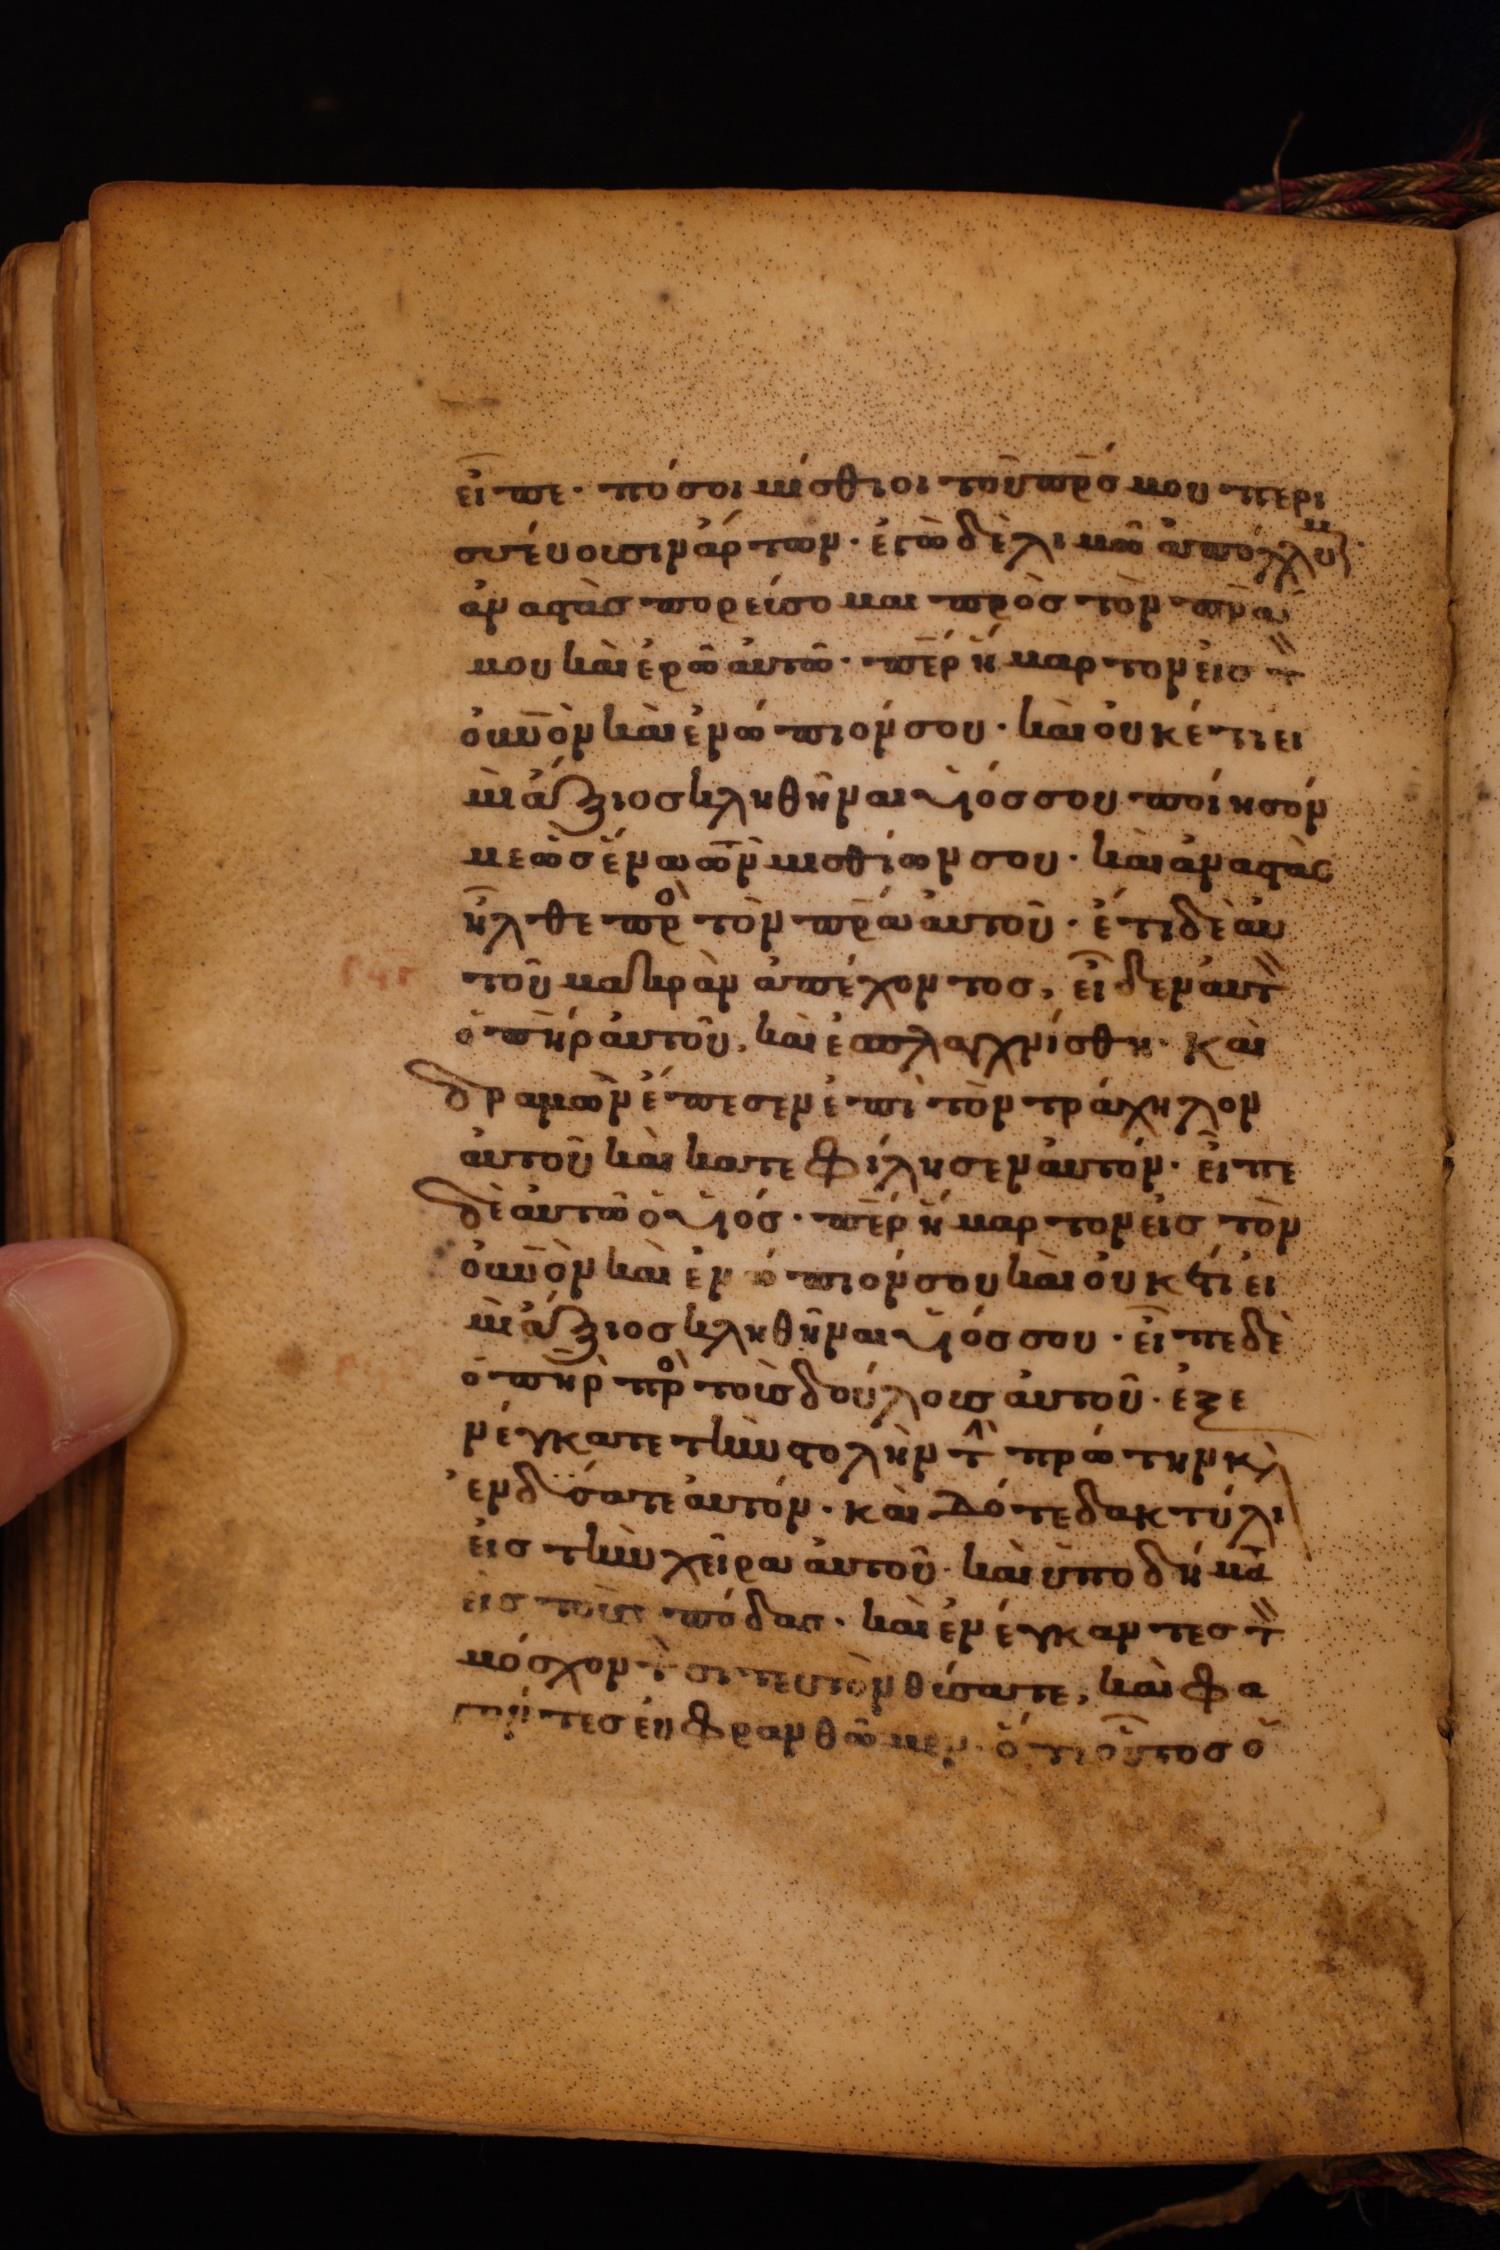 εἶπε· πόσοι μίσθιοι τοῦ πρ̅σ μου περι
σσεύουσιν ἄρτων· ἐγὼ δὲ λιμῶ ἀπόλλυμ
ἀναστὰσ πορεύσομαι πρὸσ τὸν πρ̅α
μου καὶ ἐρῶ αὐτῶ· πε̅ρ ἥμαρτον εἰσ τ
οὐν̅ον καὶ ἐνώπιόν σου· καὶ οὐκέτι εἰ
μὶ ἄξιοσ κληθῆναι υἱόσ σου ποίησόν
με ὡσ ἕνα τῶν μισθίων σου· καὶ ἀναστὰσ
ἦλθε πρὸ τὸν πρ̅α αὐτοῦ· ἔτι δὲ αὐ
τοῦ μακρὰν ἀπέχοντοσ, εἶδεν αὐτ
ὁ πη̅ρ αὐτοῦ, καὶ ἐσπλαγχνίσθη· καὶ
δραμὼν ἔπεσεν ἐπὶ τὸν τράχηλον
αὐτοῦ καὶ κατεφίλησεν αὐτόν· εἶπε
δὲ αὐτῶ ὁ υἱόσ· πε̅ρ ἥμαρτον εἰσ τὸν
οὐν̅ον καὶ ἐνώπιόν σου καὶ οὐκέτι εἰ
μὶ ἄξιοσ κληθῆναι υἱόσ σου· εἶπε δὲ
ὁ πη̅ρ πρὸ τοὺσ δούλουσ αὐτοῦ· ἐξε
νέγκατε τὴν στολὴν τὴ πρώτην κ
ἐνδύσατε αὐτόν· καὶ δότε δακτύλι
εἰσ τὴν χεῖρα αὐτοῦ· καὶ ὑποδήματ
εἰσ τοὺσ πόδασ· καὶ ἐνέγκαντεσ τ
μόσχον τ σιτευτὸν θύσατε, καὶ φα
γόντεσ εὐφρανθῶμεν· ὅτι οὗτοσ ὁ